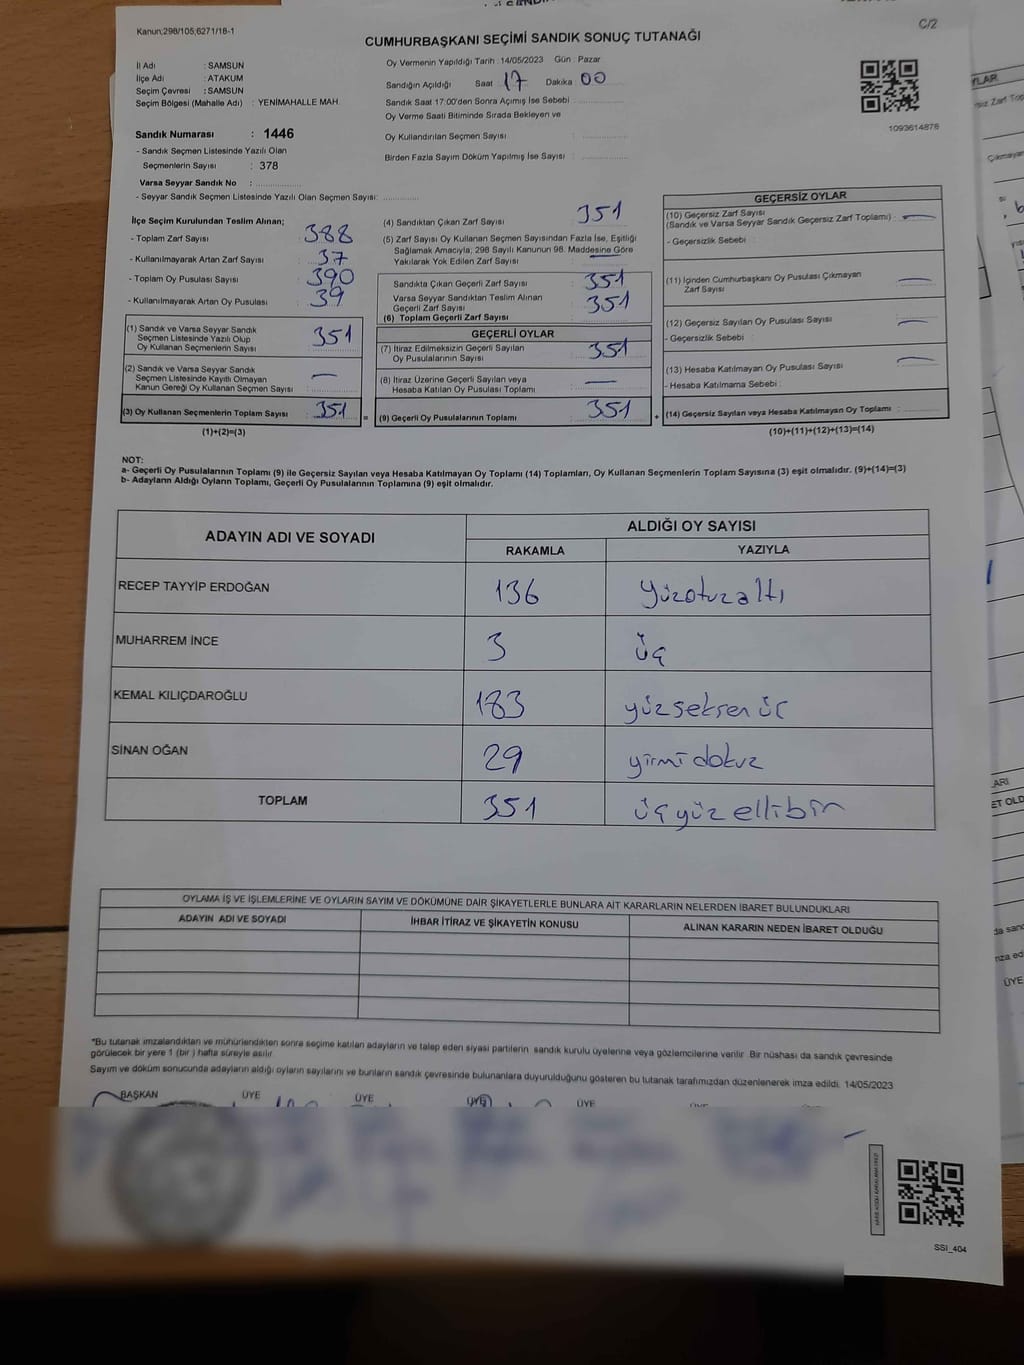 Kanun;298/105;6271/18-1
C/2
CUMHURBAŞKANI SEÇİMİ SANDIK SONUÇ TUTANAĞI
İl Adı : SAMSUN
İlçe Adı : ATAKUM
Seçim Çevresi : SAMSUN
Seçim Bölgesi (Mahalle Adı) : YENİMAHALLE MAH.
Sandık Numarası : 1446
- Sandık Seçmen Listesinde Yazılı Olan
Seçmenlerin Sayısı : 378
Varsa Seyyar Sandık No :
- Seyyar Sandık Seçmen Listesinde Yazılı Olan Seçmen Sayısı:
Oy Vermenin Yapıldığı Tarih : 14/05/2023 Gün : Pazar
Sandığın Açıldığı Saat 17 Dakika 00
Sandık Saat 17:00'den Sonra Açımış İse Sebebi :
Oy Verme Saati Bitiminde Sırada Bekleyen ve
Oy Kullandırılan Seçmen Sayısı :
Birden Fazla Sayım Döküm Yapılmış İse Sayısı :
1093614876
İlçe Seçim Kurulundan Teslim Alınan;
- Toplam Zarf Sayısı : 388
- Kullanılmayarak Artan Zarf Sayısı : 37
- Toplam Oy Pusulası Sayısı : 390
- Kullanılmayarak Artan Oy Pusulası : 39
(1) Sandık ve Varsa Seyyar Sandık
Seçmen Listesinde Yazılı Olup
Oy Kullanan Seçmenlerin Sayısı : 351
(2) Sandık ve Varsa Seyyar Sandık
Seçmen Listesinde Kayıtlı Olmayan
Kanun Gereği Oy Kullanan Seçmen Sayısı : —
(3) Oy Kullanan Seçmenlerin Toplam Sayısı : 351 =
(1)+(2)=(3)
(4) Sandıktan Çıkan Zarf Sayısı : 351
(5) Zarf Sayısı Oy Kullanan Seçmen Sayısından Fazla İse, Eşitliği
Sağlamak Amacıyla; 298 Sayılı Kanunun 98. Maddesine Göre
Yakılarak Yok Edilen Zarf Sayısı : —
Sandıkta Çıkan Geçerli Zarf Sayısı : 351
Varsa Seyyar Sandıktan Teslim Alınan
Geçerli Zarf Sayısı : 351
(6) Toplam Geçerli Zarf Sayısı
GEÇERLİ OYLAR
(7) İtiraz Edilmeksizin Geçerli Sayılan
Oy Pusulalarının Sayısı : 351
(8) İtiraz Üzerine Geçerli Sayılan veya
Hesaba Katılan Oy Pusulası Toplamı : —
(9) Geçerli Oy Pusulalarının Toplamı : 351 +
GEÇERSİZ OYLAR
(10) Geçersiz Zarf Sayısı
(Sandık ve Varsa Seyyar Sandık Geçersiz Zarf Toplamı) : —
- Geçersizlik Sebebi :
(11) İçinden Cumhurbaşkanı Oy Pusulası Çıkmayan
Zarf Sayısı : —
(12) Geçersiz Sayılan Oy Pusulası Sayısı : —
- Geçersizlik Sebebi :
(13) Hesaba Katılmayan Oy Pusulası Sayısı : —
- Hesaba Katılmama Sebebi :
(14) Geçersiz Sayılan veya Hesaba Katılmayan Oy Toplamı :
(10)+(11)+(12)+(13)=(14)
NOT:
a- Geçerli Oy Pusulalarının Toplamı (9) ile Geçersiz Sayılan veya Hesaba Katılmayan Oy Toplamı (14) Toplamları, Oy Kullanan Seçmenlerin Toplam Sayısına (3) eşit olmalıdır. (9)+(14)=(3)
b- Adayların Aldığı Oyların Toplamı, Geçerli Oy Pusulalarının Toplamına (9) eşit olmalıdır.
ADAYIN ADI VE SOYADI
ALDIĞI OY SAYISI
RAKAMLA YAZIYLA
RECEP TAYYİP ERDOĞAN 136 yüzotuzaltı
MUHARREM İNCE 3 üç
KEMAL KILIÇDAROĞLU 183 yüzseksen üç
SİNAN OĞAN 29 yirmi dokuz
TOPLAM 351 üçyüz ellibir
OYLAMA İŞ VE İŞLEMLERİNE VE OYLARIN SAYIM VE DÖKÜMÜNE DAİR ŞİKAYETLERLE BUNLARA AİT KARARLARIN NELERDEN İBARET BULUNDUKLARI
ADAYIN ADI VE SOYADI İHBAR İTİRAZ VE ŞİKAYETİN KONUSU ALINAN KARARIN NEDEN İBARET OLDUĞU
"Bu tutanak imzalandıktan ve mühürlendikten sonra seçime katılan adayların ve talep eden siyasi partilerin sandık kurulu üyelerine veya gözlemcilerine verilir. Bir nüshası da sandık çevresinde
görülecek bir yere 1 (bir) hafta süreyle asılır.
Sayım ve döküm sonucunda adayların aldığı oyların sayılarını ve bunların sandık çevresinde bulunanlara duyurulduğunu gösteren bu tutanak tarafımızdan düzenlenerek imza edildi. 14/05/2023
BAŞKAN ÜYE ÜYE ÜYE ÜYE
SSI_404